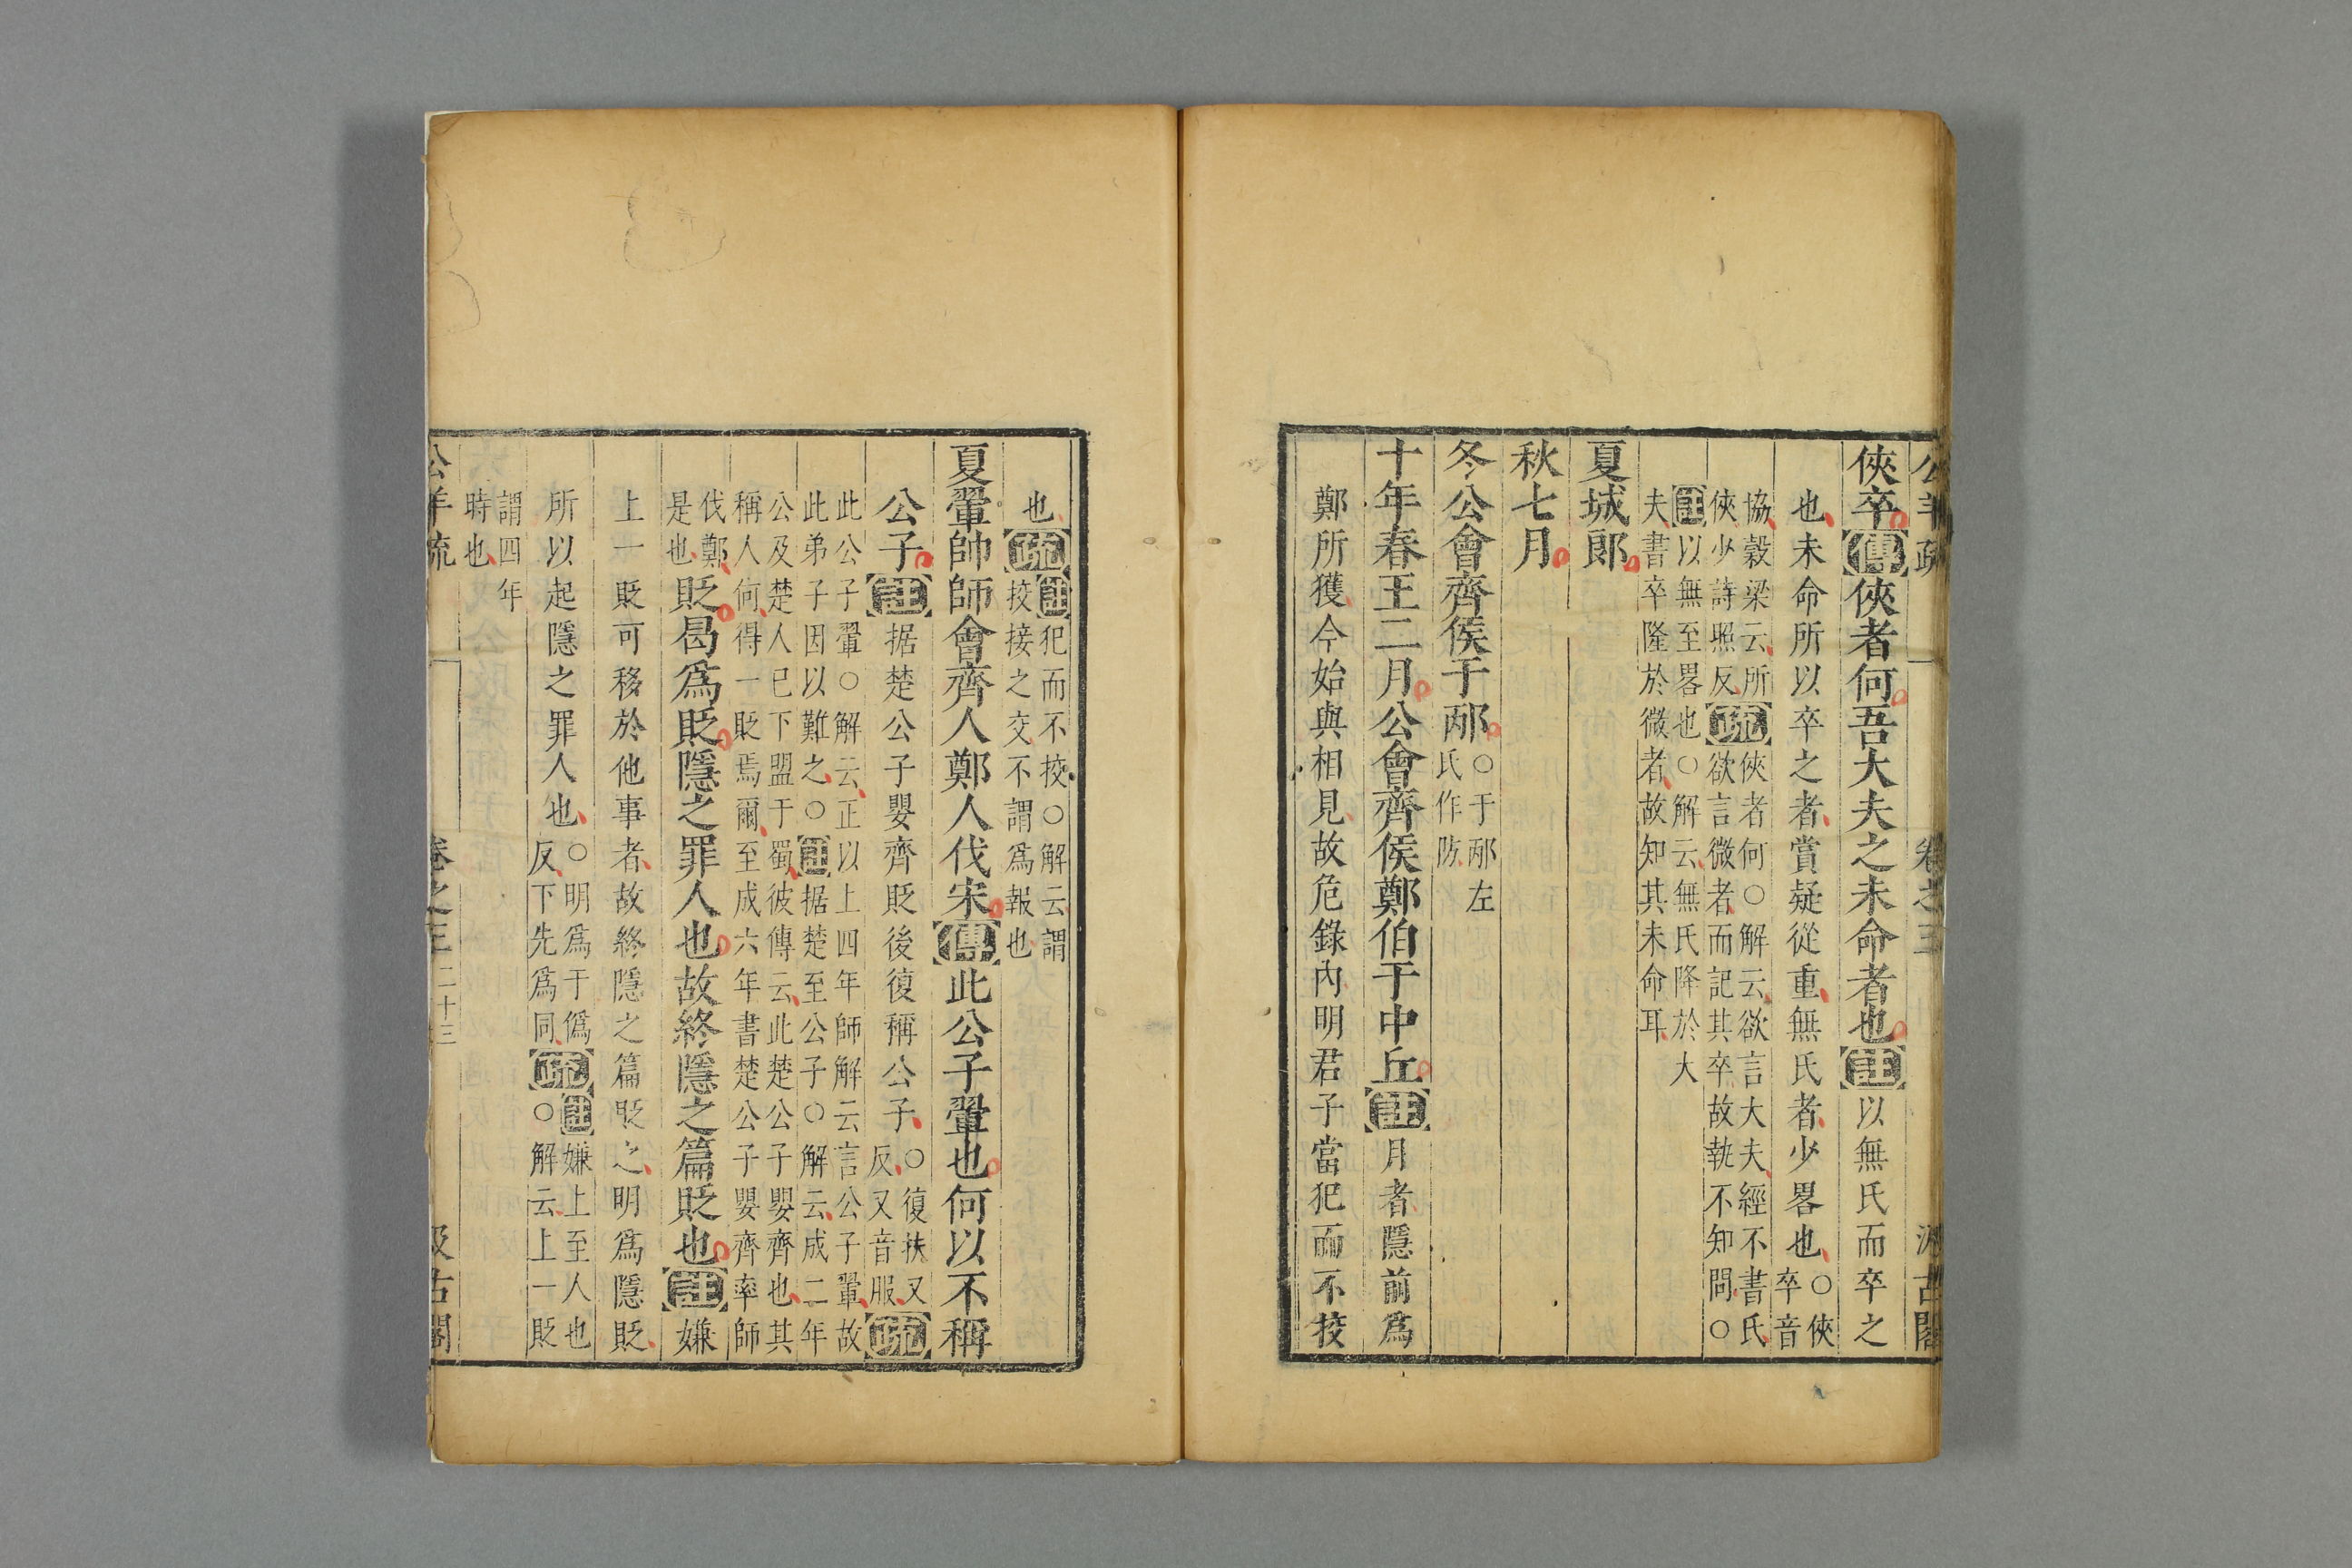 公羊疏 卷之三 汲古閣
俠卒傳俠者何吾大夫之未命者也註以無氏而卒之
也未命所以卒之者賞疑從重無氏者少畧也○俠
卒音
協穀梁云所
俠少詩照反疏俠者何○解云欲言大夫經不書氏
欲言微者而記其卒故執不知問○
註以無至畧也○解云無氏降於大
夫書卒隆於微者故知其未命耳
夏城郎
秋七月
冬公會齊侯于邴○于邴左
氏作防
十年春王二月公會齊侯鄭伯于中丘註月者隱前爲
鄭所獲今始與相見故危錄內明君子當犯而不挍
也疏註犯而不挍○解云謂
挍接之交不謂爲報也
夏翬帥師會齊人鄭人伐宋傳此公子翬也何以不稱
公子註据楚公子嬰齊貶後復稱公子○復扶又
反又音服疏
此公子翬○解云正以上四年師解云言公子翬故
此弟子因以難之○註据楚至公子○解云成二年
公及楚人已下盟于蜀彼傳云此楚公子嬰齊也其
稱人何得一貶焉爾至成六年書楚公子嬰齊率師
伐鄭
是也貶曷爲貶隱之罪人也故終隱之篇貶也註嫌
上一貶可移於他事者故終隱之篇貶之明爲隱貶
所以起隱之罪人也○明爲于僞
反下先爲同疏註嫌上至人也
○解云上一貶
謂四年
時也
公羊疏 卷之三 二十三 汲古閣